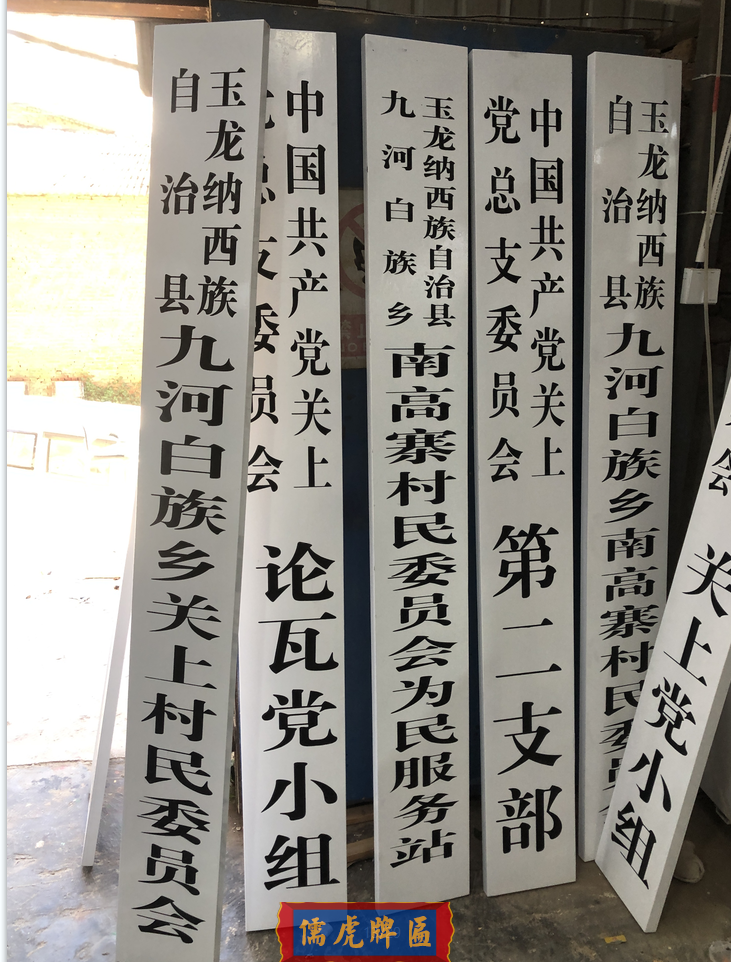 玉龙纳西族
自治县
九河白族乡关上村民委员会
中国共产党关上
党总支委员会
论瓦党小组
玉龙纳西族自治县
九河白族乡
南高寨村民委员会为民服务站
中国共产党关上
党总支委员会
第二支部
玉龙纳西族
自治县
九河白族乡南高寨村民委员
会
关上党小组
儒虎牌匾